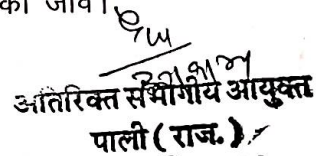 की जावे।
अतिरिक्त संभागीय आयुक्त
पाली (राज.)